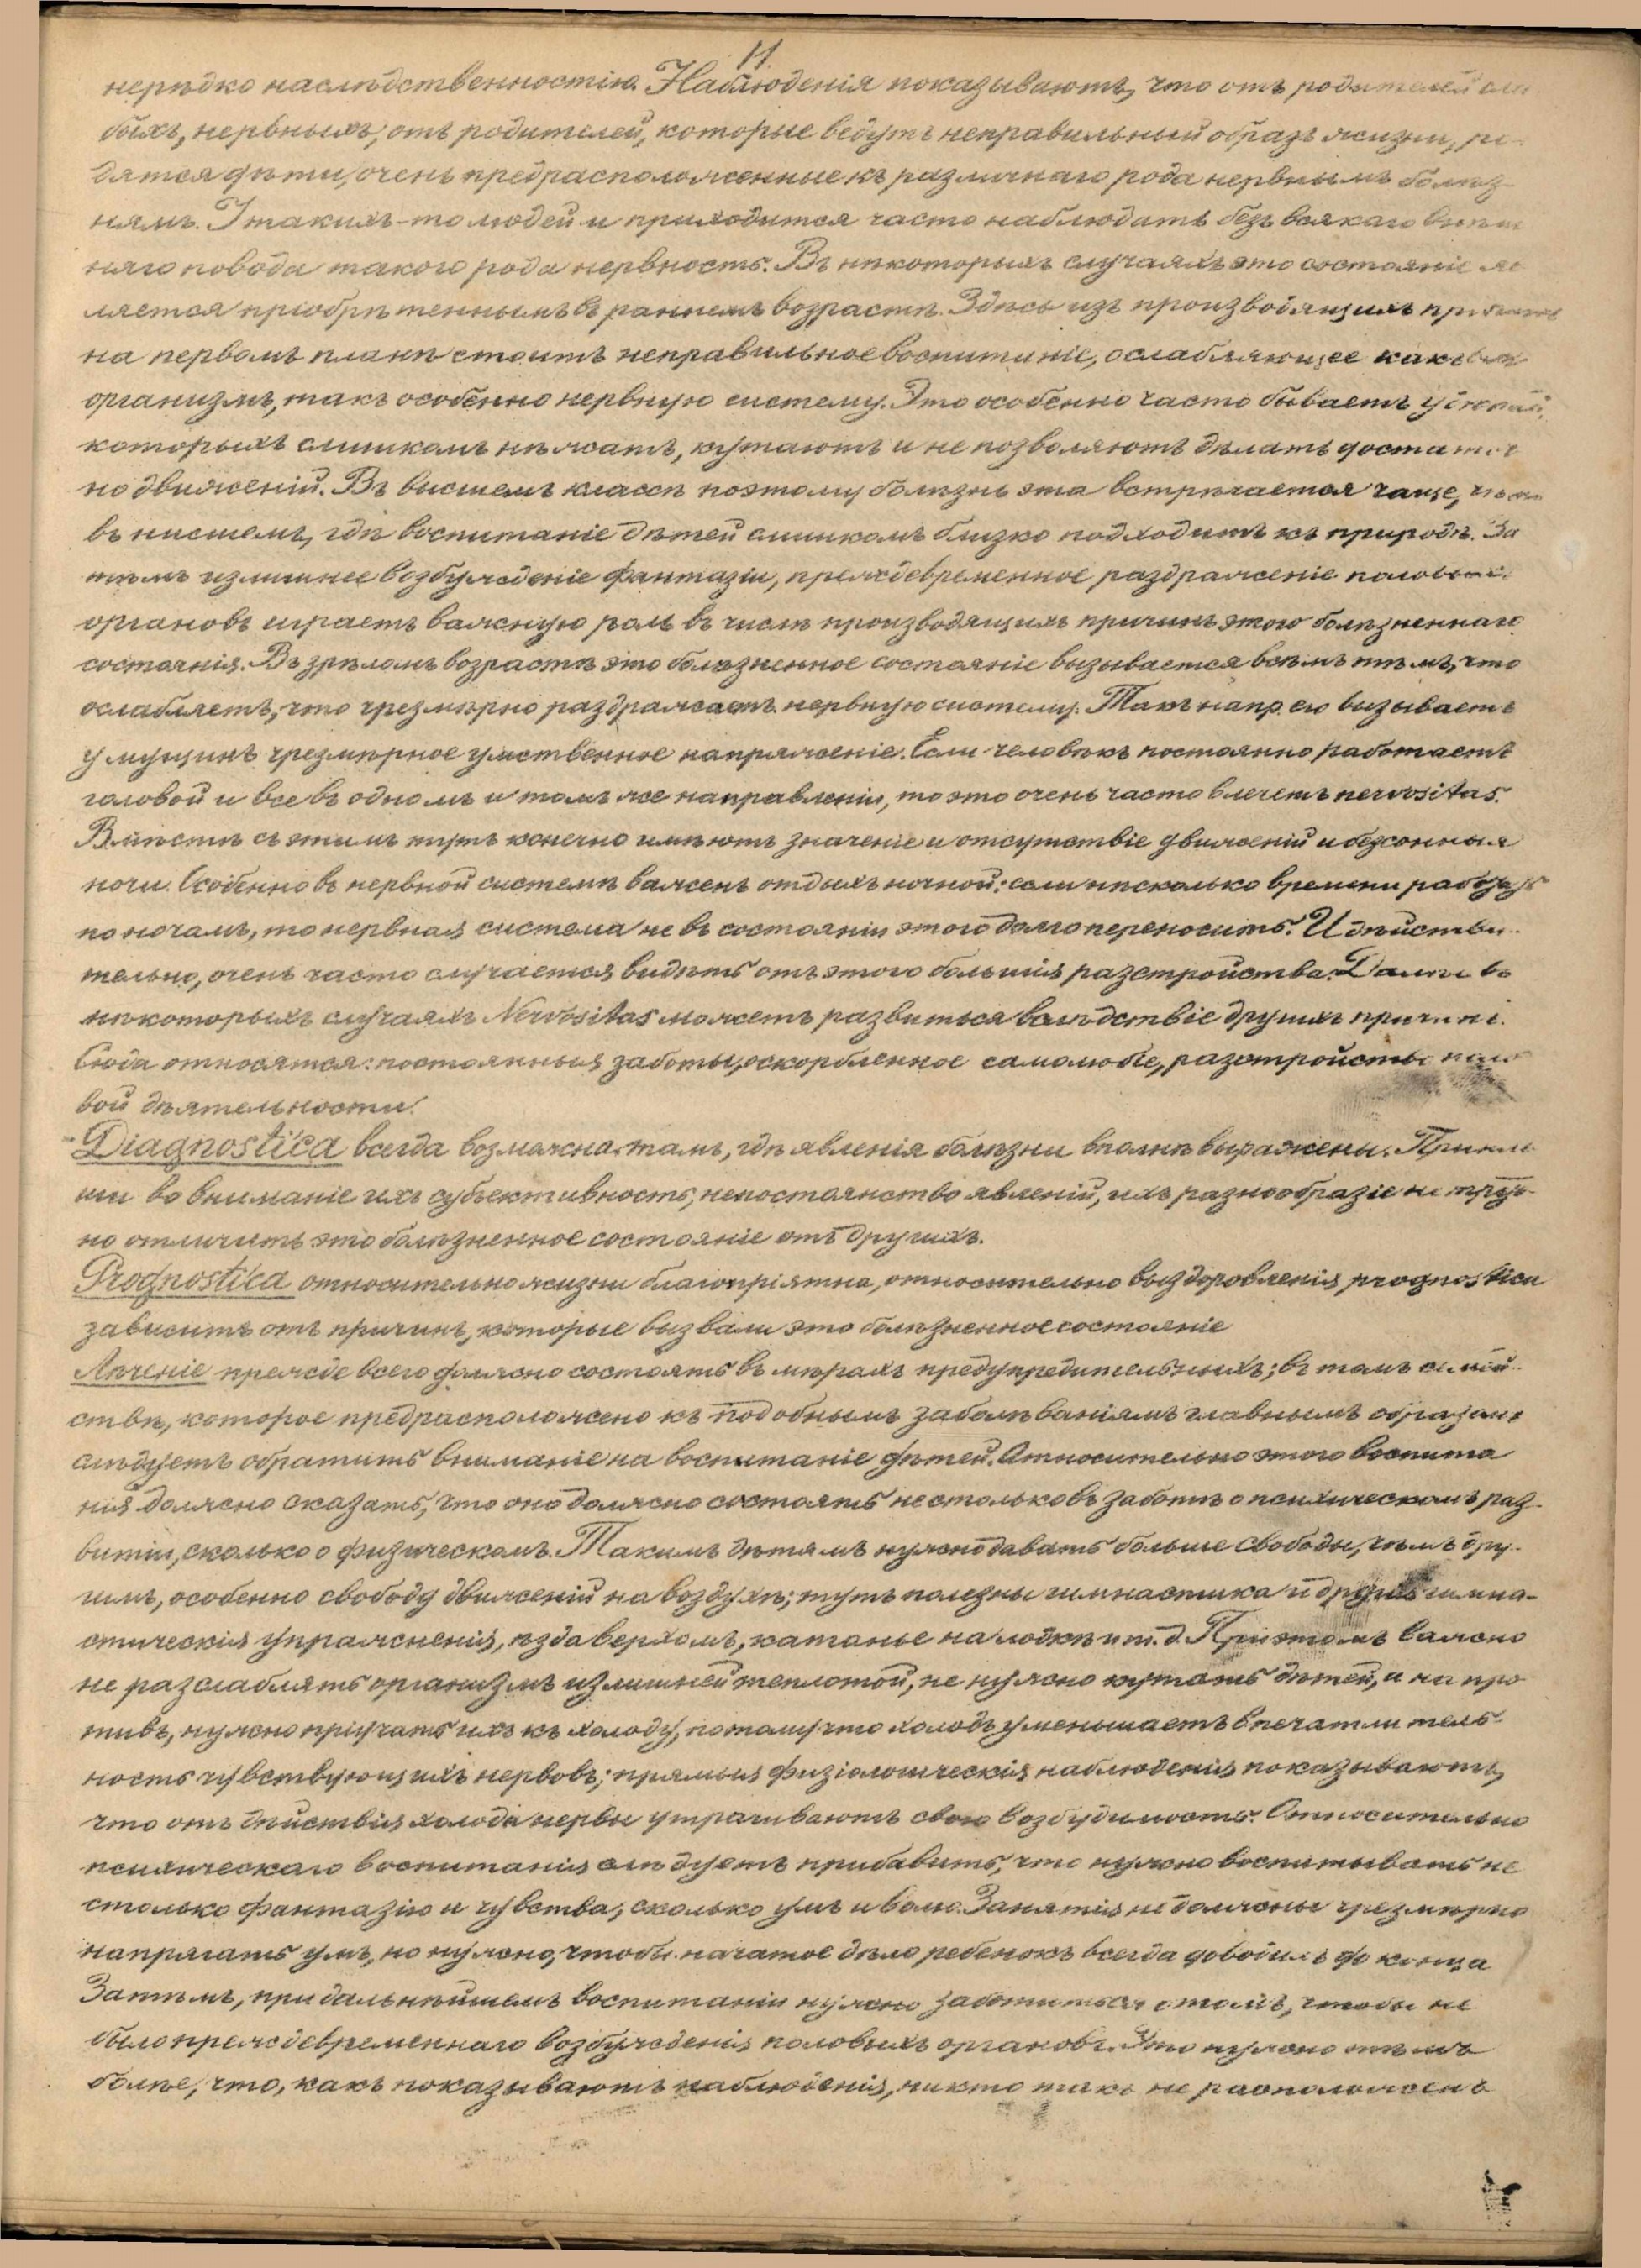 11.
нерѣдко наслѣдственностію. Наблюденія показываютъ, что отъ родителей сла
быхъ, нервныхъ, отъ родителей, которые ведутъ неправильный образъ жизни, ро-
дятся дѣти, очень предрасположенные къ различнаго рода нервнымъ болѣз-
нямъ. У такихъ-то людей и приходится часто наблюдать безъ всякаго внѣш
няго повода такого рода нервность. Въ нѣкоторыхъ случаяхъ это состояніе яв
ляется пріобрѣтеннымъ въ раннемъ возрастѣ. Здѣсь изъ производящихъ причинъ
на первомъ планѣ стоитъ неправильное воспитаніе, ослабляющее какъ весь
организмъ, такъ особенно нервную систему. Это особенно часто бываетъ у дѣтей,
которыхъ слишкомъ нѣжатъ, кутаютъ и не позволяютъ дѣлать достаточ
но движеній. Въ высшемъ классѣ поэтому болѣзнь эта встрѣчается чаще, чѣмъ
въ нисшемъ, гдѣ воспитаніе дѣтей слишкомъ близко подходитъ къ природѣ. За
тѣмъ излишнее возбужденіе фантазіи, преждевременное раздраженіе половыхъ
органовъ играетъ важную роль въ числѣ производящихъ причинъ этого болѣзненнаго
состоянія. Въ зрѣломъ возрастѣ это болѣзненное состояніе вызывается всѣмъ тѣмъ, что
ослабляетъ, что чрезмѣрно раздражаетъ нервную систему. Такъ напр. его вызываетъ
у мущинъ чрезмѣрное умственное напряженіе. Если человѣкъ постоянно работаетъ
головой и все въ одномъ и томъ же направленіи, то это очень часто влечетъ nervositas.
Вмѣстѣ съ этимъ тутъ конечно имѣютъ значеніе и отсутствіе движеній и безсонныя
ночи. Особенно въ нервной системѣ важенъ отдыхъ ночной: если нѣсколько времени работать
по ночамъ, то нервная система не въ состояніи этого долго переносить. И дѣйстви-
тельно, очень часто случается видѣть отъ этого большія разстройства. Далѣе въ
нѣкоторыхъ случаяхъ Nervositas можетъ развиться вслѣдствіе другихъ причинъ.
Сюда относятся: постоянныя заботы, оскорбленное самолюбіе, разстройство поло
вой дѣятельности.
Diagnostica всегда возможна тамъ, гдѣ явленія болѣзни вполнѣ выражены. Приняв
ши во вниманіе ихъ субъективность, непостоянство явленій, ихъ разнообразіе не труд-
но отличить это болѣзненное состояніе отъ другихъ.
Prognostica относительно жизни благопріятна, относительно выздоровленія prognostica
зависитъ отъ причинъ, которые вызвали это болѣзненное состояніе
Лѣченіе прежде всего должно состоять въ мѣрахъ предупредительныхъ; въ томъ семей-
ствѣ, которое предрасположено къ подобнымъ заболѣваніямъ главнымъ образомъ
слѣдуетъ обратить вниманіе на воспитаніе дѣтей. Относительно этого воспита
нія должно сказать, что оно должно состоять не столько въ заботѣ о психическомъ раз-
витіи, сколько о физическомъ. Такимъ дѣтямъ нужно давать больше свободы, чѣмъ дру-
гимъ, особенно свободу движеній на воздухѣ; тутъ полезны гимнастика и другія гимна-
стическія упражненія, ѣзда верхомъ, катанье на лодкѣ и т. д. При этомъ важно
не разслаблять организмъ излишней теплотой, не нужно кутать дѣтей, а на про
тивъ, нужно пріучать ихъ къ холоду, потому что холодъ уменьшаетъ впечатлитель-
ность чувствующихъ нервовъ; прямыя физіологическія наблюденія показываютъ,
что отъ дѣйствія холода нервы утрачиваютъ свою возбудимость. Относительно
психическаго воспитанія слѣдуетъ прибавить, что нужно воспитывать не
столько фантазію и чувства, сколько умъ и волю. Занятія не должны чрезмѣрно
напрягать умъ, но нужно, чтобы начатое дѣло ребенокъ всегда доводилъ до конца
Затѣмъ, при дальнѣйшемъ воспитаніи нужно заботиться о томъ, чтобы не
было преждевременнаго возбужденія половыхъ органовъ. Это нужно тѣмъ
болѣе, что, какъ показываютъ наблюденія, никто такъ не расположенъ